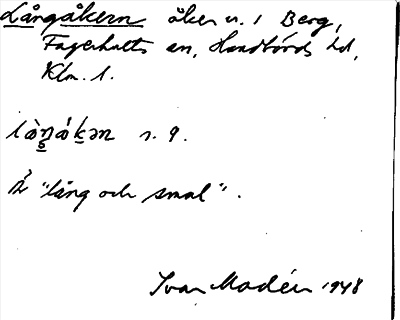 Långåkern åker n. 1 Berg,
Fagerhults sn, Handbörds hd,
Klm. l.
làŋåkən s. 9.
Är "lång och smal".
Ivar Modéer 1948